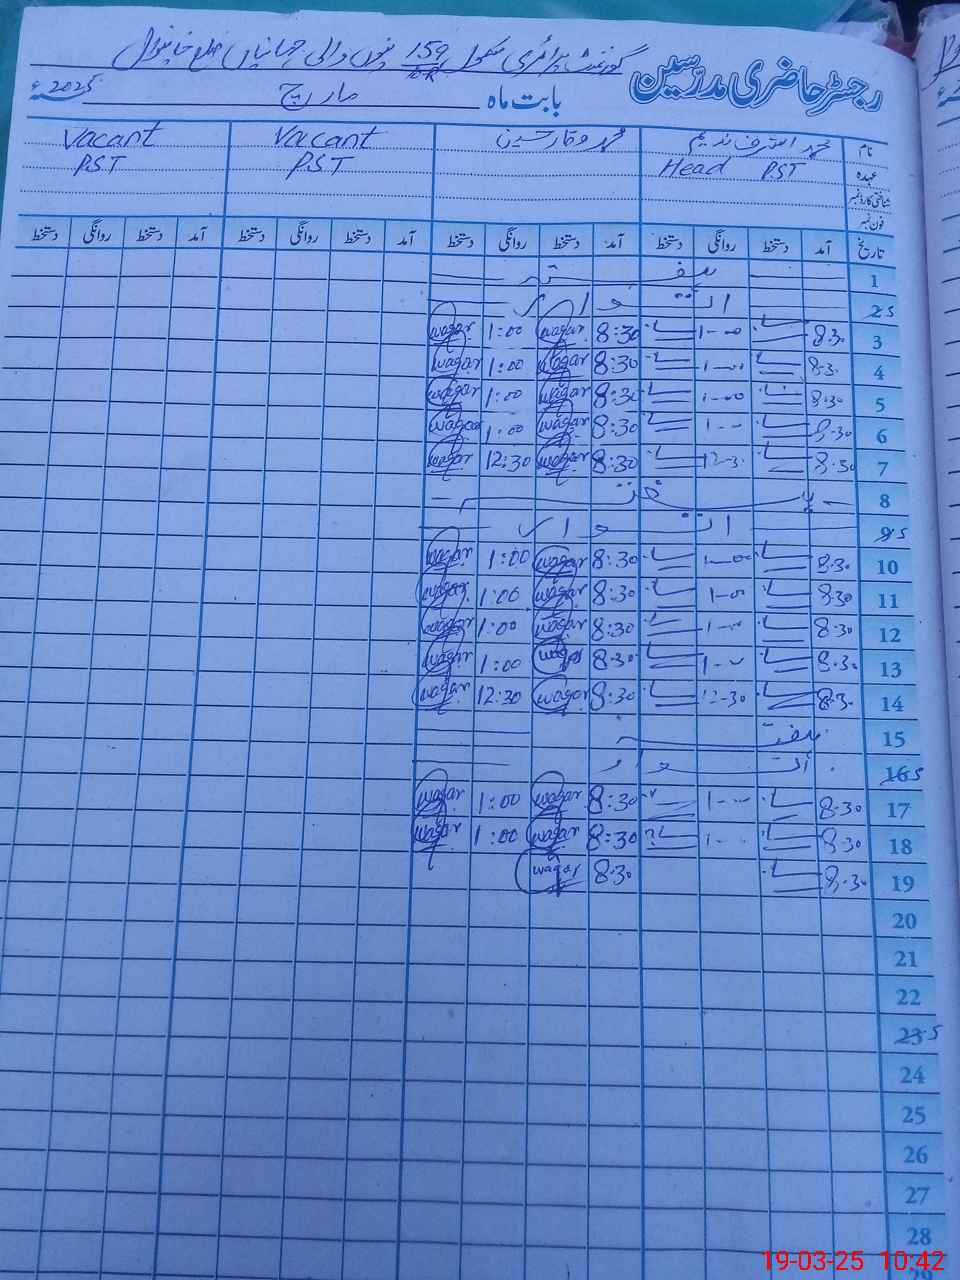 رجسٹر حاضری مدرسین گورنمنٹ پرائمری سکول 159/10-R والی جہانیاں ضلع خانیوال
بابت ماہ مارچ 2025ء
نام محمد اشرف ندیم محمد وقار حسین Vacant Vacant
عہدہ Head PST PST PST
شناختی کارڈ نمبر
فون نمبر
تاریخ آمد دستخط روانگی دستخط آمد دستخط روانگی دستخط آمد دستخط روانگی دستخط آمد دستخط روانگی دستخط
1 ہفتہ
2 S اتوار
3 8:30 1-00 8:30 waqar 1:00 waqar
4 8:30 1-00 8:30 waqar 1:00 waqar
5 8:30 1-00 8:30 waqar 1:00 waqar
6 8:30 1-- 8:30 waqar 1:00 waqar
7 8:30 12-30 8:30 waqar 12:30 waqar
8 ہفتہ
9 S اتوار
10 8:30 1-00 8:30 waqar 1:00 waqar
11 8:30 1-00 8:30 waqar 1:00 waqar
12 8:30 1-- 8:30 waqar 1:00 waqar
13 8:30 1-- 8:30 waqar 1:00 waqar
14 8:30 12-30 8:30 waqar 12:30 waqar
15 ہفتہ
16 S اتوار
17 8:30 1-- 8:30 waqar 1:00 waqar
18 8:30 1-- 8:30 waqar 1:00 waqar
19 8:30 8:30 waqar
20
21
22
23 S
24
25
26
27
28
19-03-25 10:42